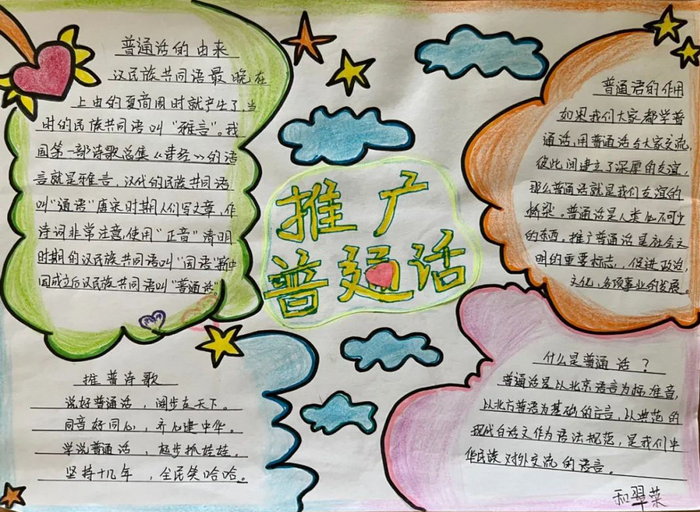 普通话的由来
汉民族共同语最晚在
上古的夏商周时就产生了,当
时的民族共同语叫“雅言”。我
国第一部诗歌总集《诗经》的语
言就是雅言,汉代的民族共同语
叫“通语”唐宋时期人们写文章,作
诗词非常注意使用“正音”清明
时期的汉民族共同语叫“国语”新中
国成立后汉民族共同语叫“普通话”
推广
普通话
普通话的作用
如果我们大家都学普
通话,用普通话与大家交流,
彼此间建立了深厚的友谊,
那么普通话就是我们友谊的
桥梁。普通话是人类必不可少
的东西,推广普通话是社会文
明的重要标志,促进政治
文化,各项事业的发展。
推普诗歌
说好普通话,阔步走天下。
同音好同心,齐心建中华。
学说普通话,起步抓娃娃。
坚持十几年,全民笑哈哈。
什么是普通话?
普通话是以北京语言为标准音,
以北方普语为基础的方言,以典范的
现代白话文作为语法规范,是我们中
华民族对外交流的语言。
和翠菜